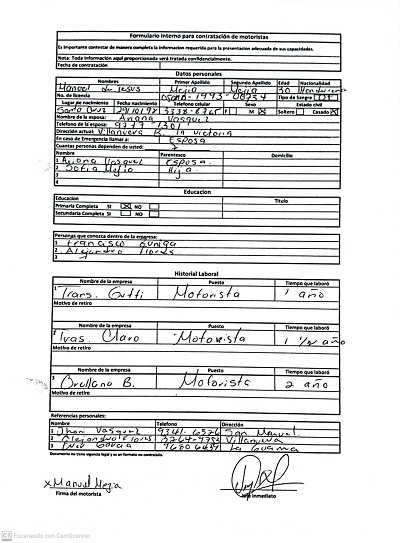 Formulario Interno para contratación de motoristas
Es importante contestar de manera completa la informacion requerida para la presentacion adecuada de sus capacidades.
Nota: Toda informacion aqui proporcionada será tratada confidencialmente.
Fecha de contratación
Datos personales
Nombres Primer Apellido Segundo Apellido Edad Nacionalidad
Manuel de Jesus Mejia Mejia 30 Hondureña
No. de licencia Tipo de Sangre
Lugar de nacimiento Fecha nacimiento Telefono celular Sexo Estado civil
Santa Cruz F M Soltero Casado
Nombre de la esposa: Ariana Vasquez
Telefono de la esposa:
Dirección actual: Villanueva la victoria
En caso de Emergencia llamar a: Esposa
Cuantas personas dependen de usted:
Nombre Parentesco Domicilio
1 Ariana Vasquez Esposa
2 Sofia Mejia Hija
3
4
Educacion
Educacion Titulo
Primaria Completa SI NO
Secundaria Completa SI NO
Personas que conozca dentro de la empresa:
1 Francisco Zuniga
2 Alejandro Flores
3
Historial Laboral
Nombre de la empresa Puesto Tiempo que laboró
1 Trans. Gutti Motorista 1 año
Motivo de retiro
Nombre de la empresa Puesto Tiempo que laboró
2 Tras. Claro Motorista 1 1/2 año
Motivo de retiro
Nombre de la empresa Puesto Tiempo que laboró
3 Orellana B. Motorista 2 año
Motivo de retiro
Referencias personales:
Nombre Telefono Dirección
1 Jhon Vasquez 9341-6526 San Manuel
2 Alejandro Flores Villanueva
3 La Guama
Documento no tiene vigencia legal y es un formato no controlado.
x Manuel Mejia
Firma del motorista
Jefe inmediato
CS Escaneado con CamScanner